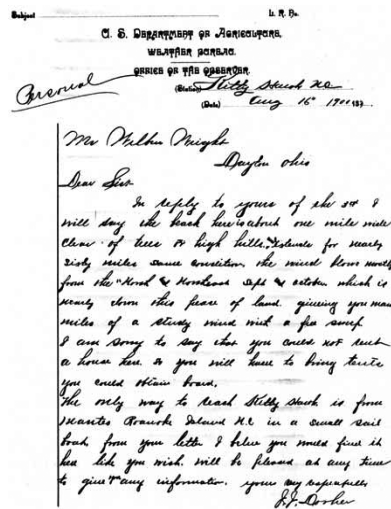 Subject
L. R. No.
U. S. DEPARTMENT OF AGRICULTURE,
WEATHER BUREAU.
OFFICE OF THE OBSERVER.
Personal
(Station) Kitty Hawk N C
(Date) Aug 16" 1900
Mr Wilbur Wright
Dayton Ohio
Dear Sir
In reply to yours of the 3rd I
will say the beach here is about one mile wide
clear of trees or high hills, for nearly
sixty miles same condition. the wind blows mostly
from the North & Northeast Sept & october which is
nearly down this peace of land. giveing you many
miles of a study wind with a free sweep
I am sorry to say that you could not rent
a house here so you will have to bring tents
you could obtain board.
the only way to reach Kitty Hawk is from
Manteo Roanoke Island N.C in a small sail
boat from your letter I belive you would find it
here like you wish. will be pleased at any time
to give any information. yours very respectfully
J. J. Dosher